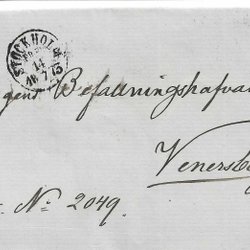 STOCKHOLM
14 7
gens Befallningshafva
Venersb
No 2049.